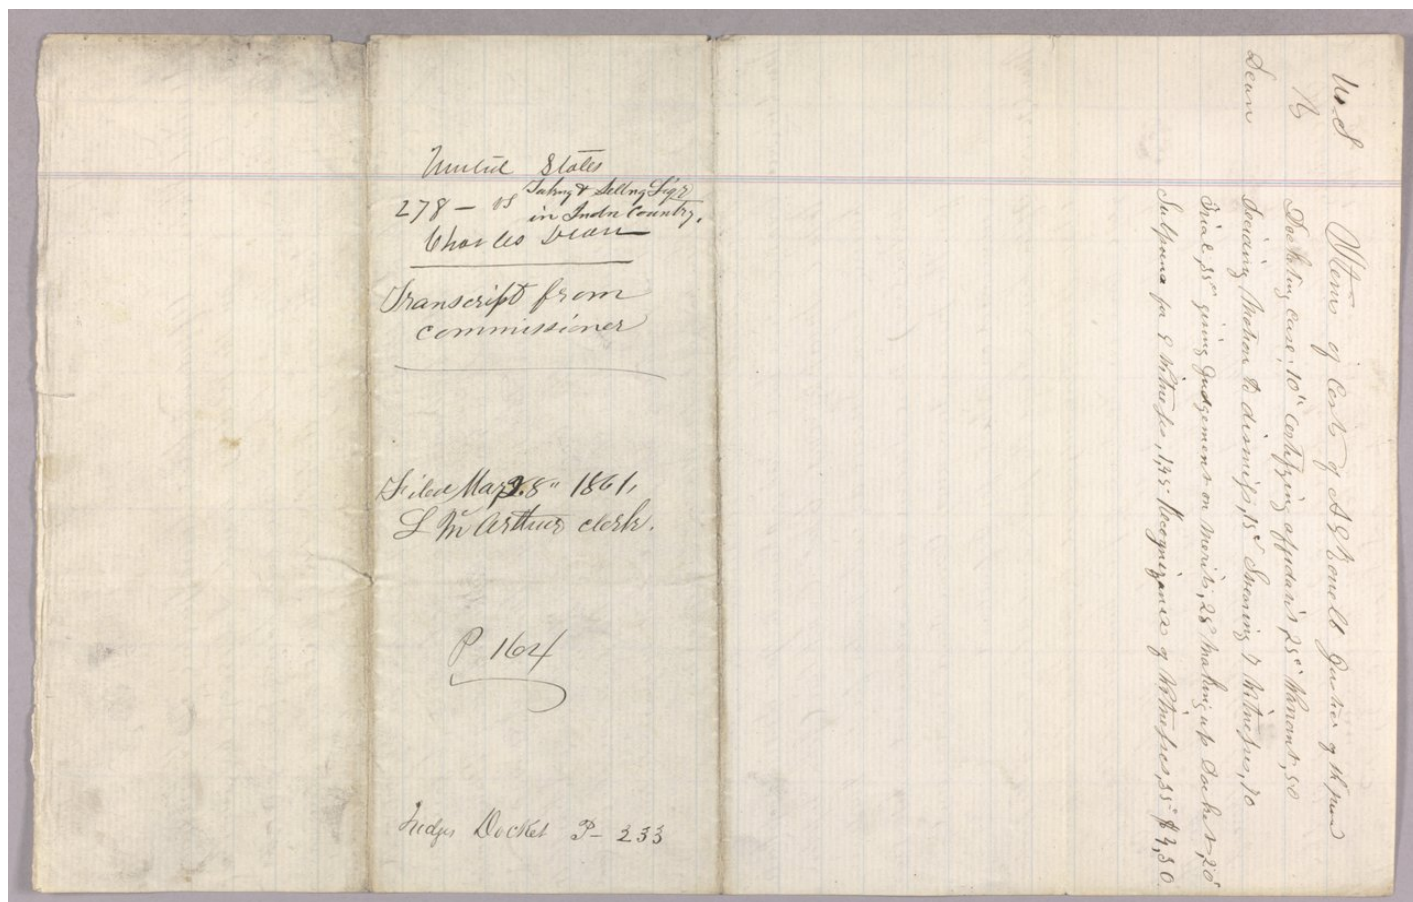 United States
278 – vs Taking & Selling Liqr
in Indn Country.
Charles Dean
Transcript from
commissioner
Filed May 28" 1861,
L McArthur clerk.
P 164
Judges Docket P – 233
U.S
vs
Dean
Items of Cost of Justice of the peace
Docketing case, 10" Certifying affidavit, 25" Warrant, 50
deciding Motion to dismiss, 15" Swearing 7 Witnesses, 70
Trial, giving Judgement on merits, 25" Making up Docket, 20"
Subpoena for 8 Witnesses, Recognizance of Witnesses, 35"